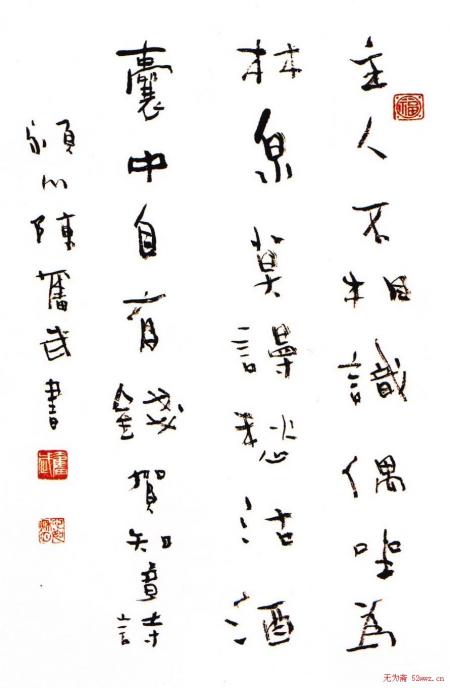 主人不相識偶坐為
林泉莫謾愁沽酒
囊中自有錢賀知章詩
潁川陳奮武書
福
无为斋 52wwz.cn